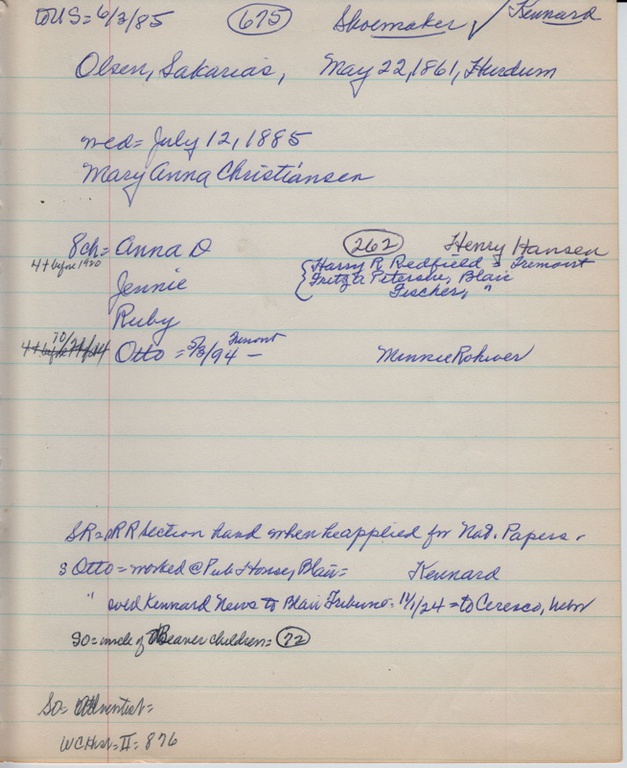 to US = 6/3/85 675 Shoemaker / Kennard
Olsen, Sakarias, May 22, 1861, Hurdum
med = July 12, 1885
Mary Anna Christiansen
8 ch = Anna D 262 Henry Hansen
4 + before 1920 Harry R Redfield = Fremont
Jennie Fritz A Petersen, Blair
Fischer, "
Ruby
Otto = 5/3/94 – Fremont Minnie Rohwer
SR = RR Section hand when he applied for Nat. Papers.
s Otto = worked @ Pub House, Blair = Kennard
" sold Kennard News to Blair Tribune = 11/1/24 = to Ceresco, Nebr
SO = uncle of Beaver children = 72
SO =
WC Hist = II = 876